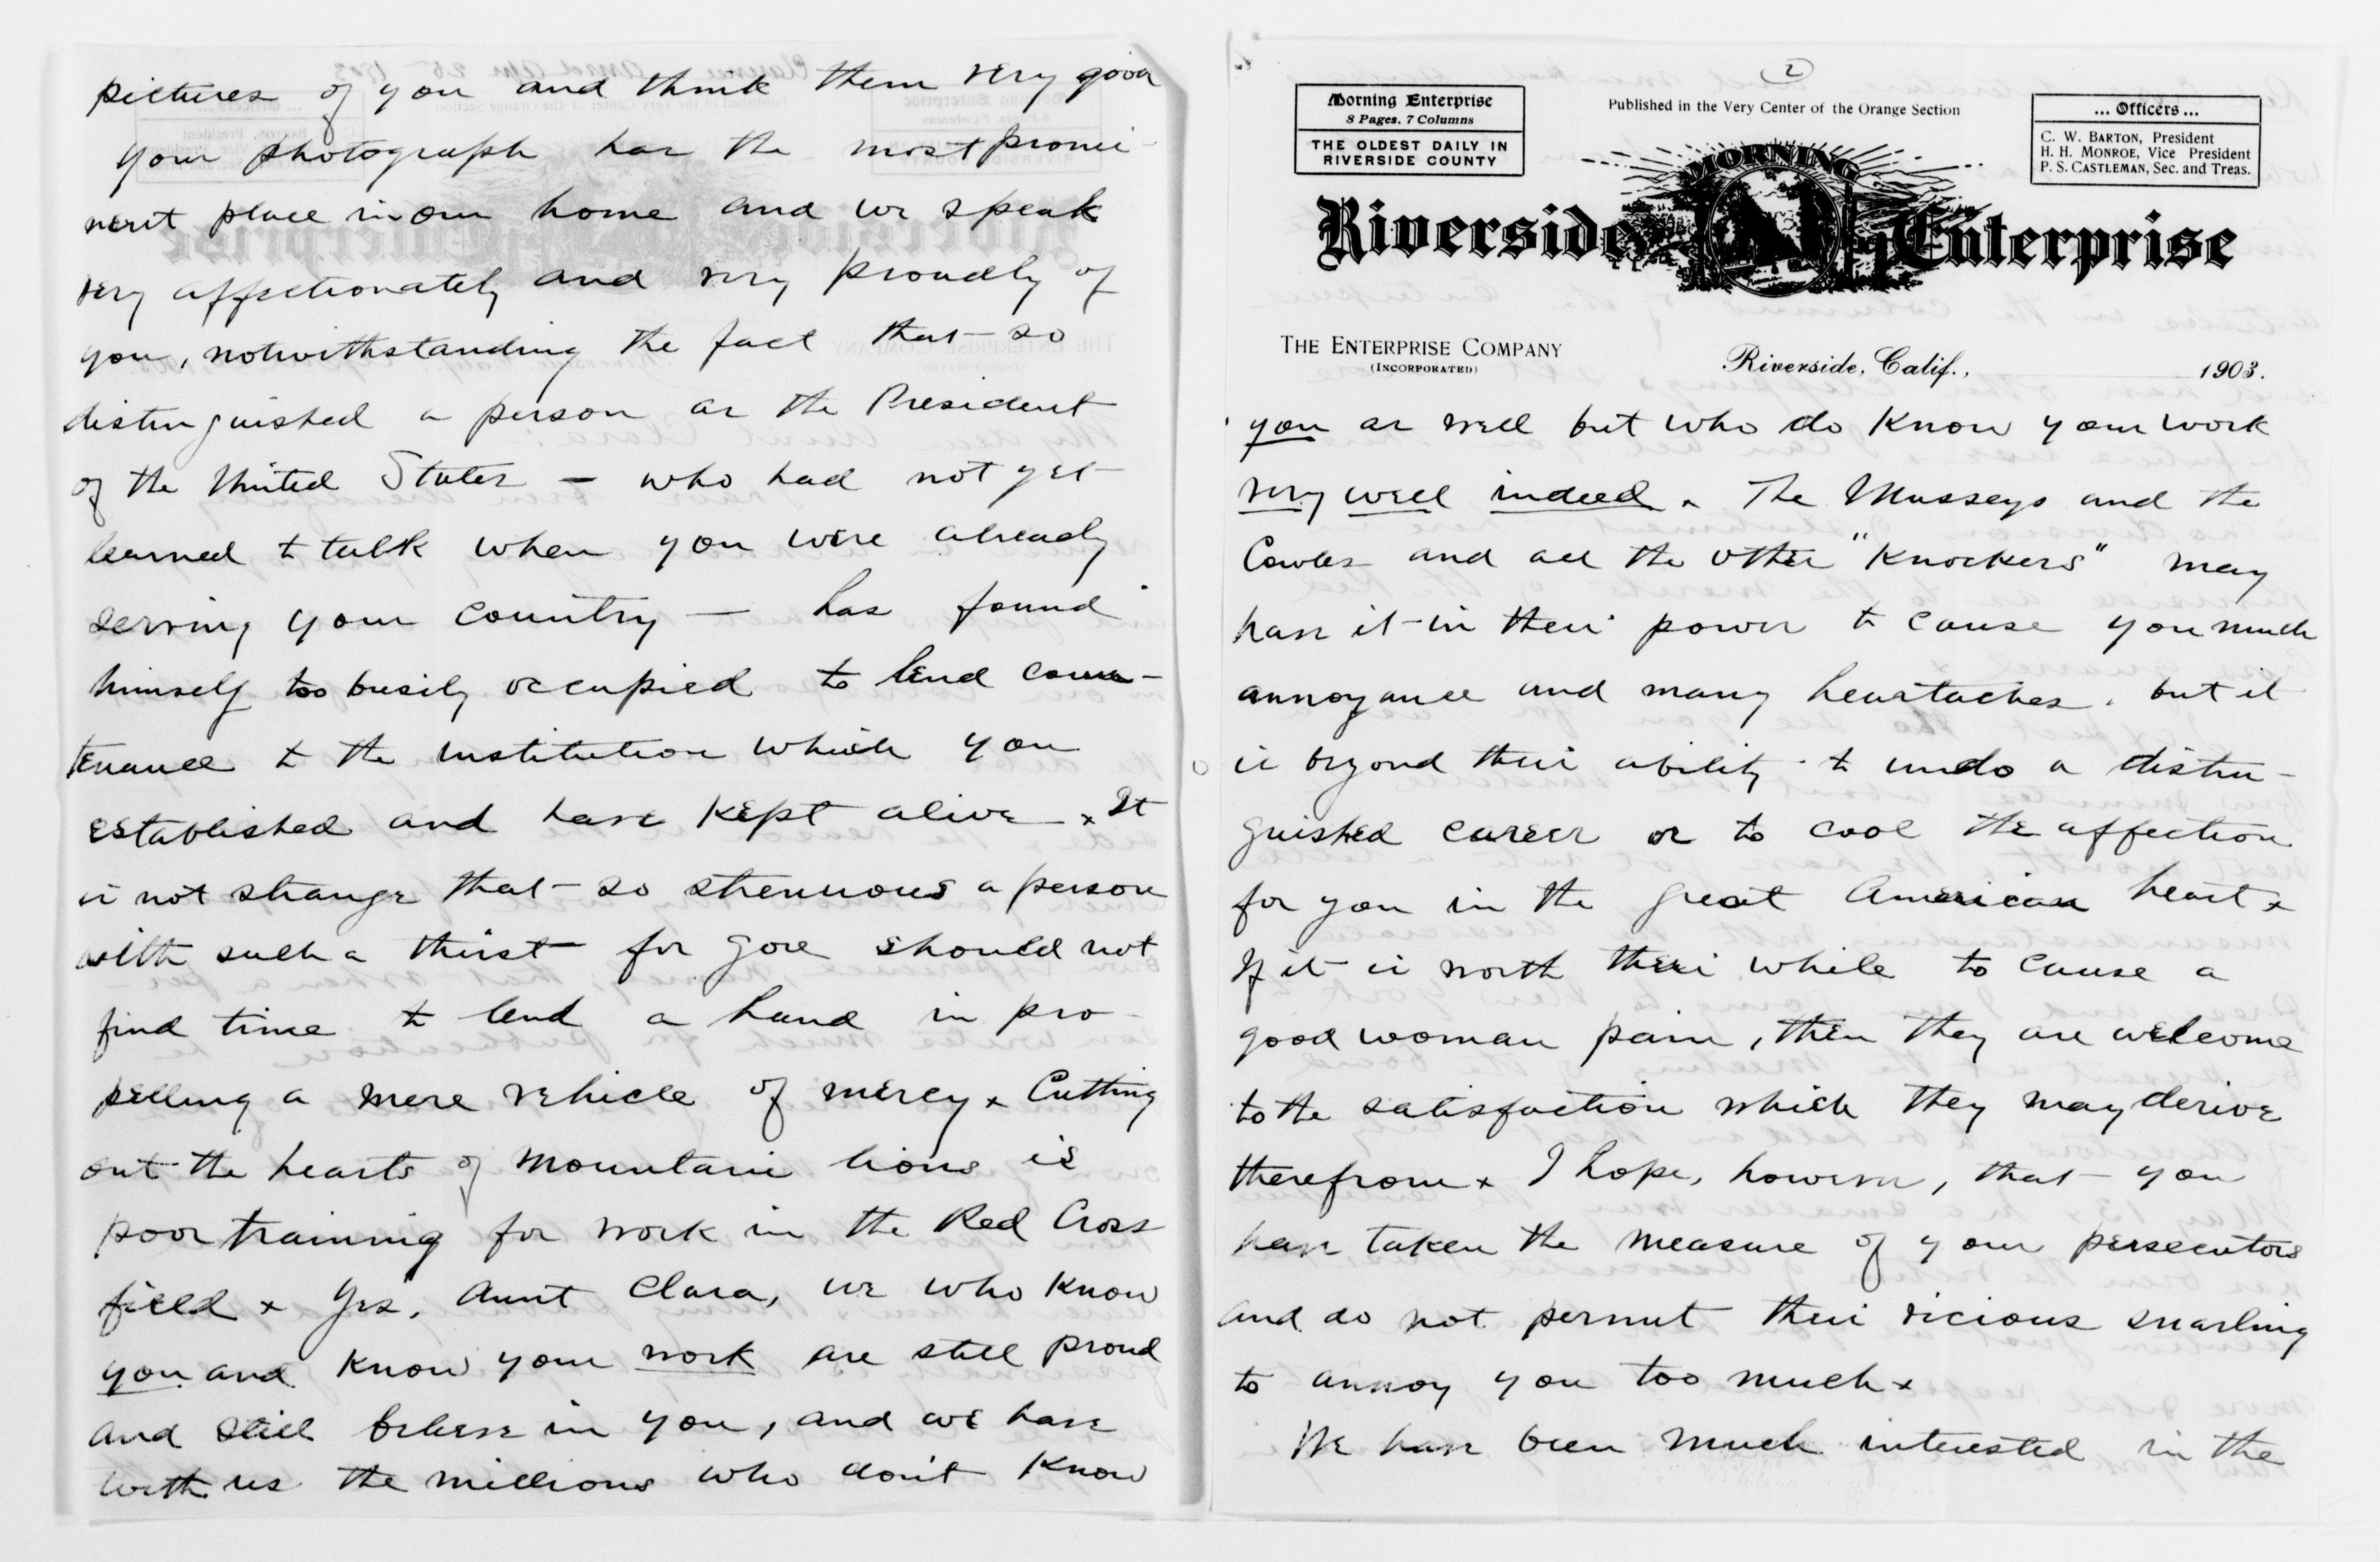 pictures of you and think them very good
your photograph has the most promi-
nent place in our home and we speak
very affectionately and very proudly of
you, notwithstanding the fact that so
distinguished a person as the President
of the United States — who had not yet
learned to talk when you were already
serving your country — has found
himself too busily occupied to lend coun-
tenance to the institution which you
established and have kept alive x It
is not strange that so strenuous a person
with such a thirst for gore should not
find time to lend a hand in pro-
pelling a mere vehicle of mercy x Cutting
out the hearts of mountain lions is
poor training for work in the Red Cross
field x Yes, Aunt Clara, we who know
you and know your work are still proud
and still believe in you, and we have
with us the millions who don't know
2
Morning Enterprise
8 Pages. 7 Columns
THE OLDEST DAILY IN
RIVERSIDE COUNTY
Published in the Very Center of the Orange Section
... Officers ...
C. W. BARTON, President
H. H. MONROE, Vice President
P. S. CASTLEMAN, Sec. and Treas.
MORNING
Riverside Enterprise
THE ENTERPRISE COMPANY
(INCORPORATED)
Riverside, Calif., 1903.
you as well but who do know your work
very well indeed x The Musseys and the
Cowles and all the other "Knockers" may
have it in their power to cause you much
annoyance and many heartaches, but it
is beyond their ability to undo a distin-
guished career or to cool the affection
for you in the great American heart x
If it is worth their while to cause a
good woman pain, then they are welcome
to the satisfaction which they may derive
therefrom x I hope, however, that you
have taken the measure of your persecutors
and do not permit their vicious snarling
to annoy you too much x
We have been much interested in the